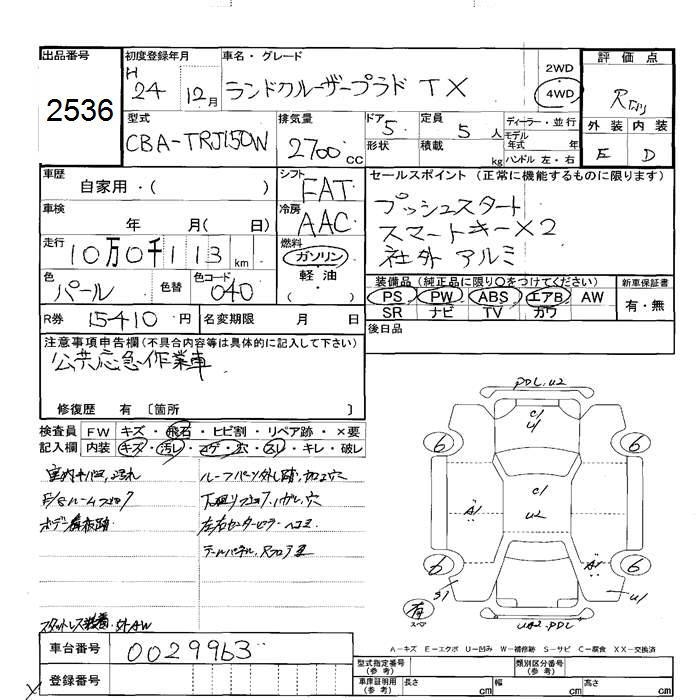 出品番号
2536
初度登録年月
H 24 12月
車名・グレード
ランドクルーザープラド TX
2WD
4WD
評価点
型式
CBA-TRJ150W
排気量
2700 cc
ドア
5
形状
定員
5 人
積載
kg
ディーラー・並行
モデル
年式 年
ハンドル 左・右
外装 内装
E D
車歴
自家用・( )
シフト
FAT
セールスポイント(正常に機能するものに限ります)
プッシュスタート
スマートキー×2
社外 アルミ
車検
年 月( 日)
冷房
AAC
走行
10万0千113 km
燃料
ガソリン
軽油
( )
色
パール
色替
色コード
040
装備品(純正品に限り○をつけてください)
PS PW ABS エアB AW
SR ナビ TV カワ
新車保証書
有・無
R券 15410 円
名変期限 月 日
後日品
注意事項申告欄(不具合内容等は具体的に記入して下さい)
公共応急作業車
修復歴 有〔箇所 〕
検査員
記入欄
FW キズ・飛石・ヒビ割・リペア跡・×要
内装 キズ・汚レ・コゲ・穴・スレ・キレ・破レ
ルーフパーツ外し跡,加工穴
スタットレス装着 外AW
PDL.u2
c/
u/
6 6
A1
c/
u2
6 6
S1
A1
u1
有
スペア
uA2.PDL
A-キズ E-エクボ U-凹み W-補修跡 S-サビ C-腐食 XX-交換済
車台番号
0029963
登録番号
型式指定番号
(参考)
類別区分番号
(参考)
車庫証明用
(参考)
長さ cm
幅 cm
高さ cm